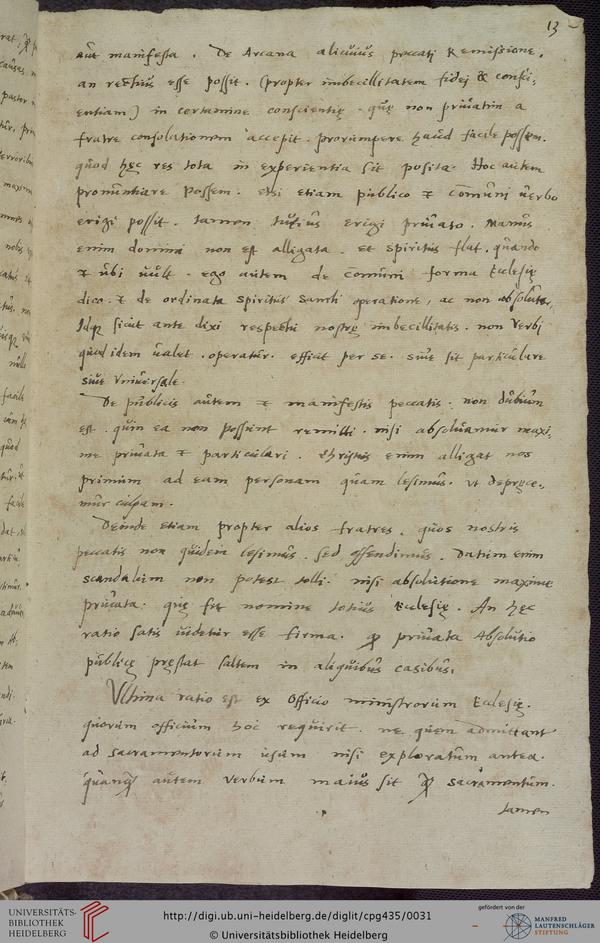 13
aut manifesta . De Arcana alicuius peccati Remissione,
an rectius esse possit . (propter imbecillitatem fidei & consci,
entiam) in certamine conscientię . quę non priuatim a
fratre consolationem accepit . prorumpere haud facile possem.
quod hęc res tota in experientia sit posita. Hoc autem
pronuntiare possem . etsi etiam publico et communi uerbo
erigi possit . tamen tutius erigi priuato . Manus
enim domini non est alligata . et spiritus flat . quando
et ubi uult . ego autem de comuni forma Ecclesię
dico . et de ordinata spiritus sancti operatione, ac non absoluta,
Idque sicut ante dixi respectu nostrę imbecillitatis . non Verbi
quod idem ualet . operatur . efficit per se . siue sit particulare
siue vniuersale.
De publicis autem et manifestis peccatis . non dubium
est . quin ea non possint remitti . nisi absoluamur maxi,
me priuata et particulari . Christus enim alligat nos
primum ad eam personam quam lesimus . ut deprece,
mur culpam .
Deinde etiam propter alios fratres . quos nostris
peccatis non quidem lesimus . sed offendimus . Datum enim
scandalum non potest tolli . nisi absolutione maxime
priuata . quę fit nomine totius Ecclesię . An hęc
ratio satis uidetur esse firma . priuata Absolutio
publicę pręstat saltem in aliquibus casibus,
Vltima ratio est ex Officio ministrorum Ecclesię .
quorum officium hoc requirit . ne quem admittant
ad sacramentorum usum nisi exploratum antea .
autem verbum maius sit sacramentum .
tamen
UNIVERSITÄTS-
BIBLIOTHEK
HEIDELBERG
http://digi.ub.uni-heidelberg.de/diglit/cpg435/0031
© Universitätsbibliothek Heidelberg
gefördert von der
MANFRED
LAUTENSCHLÄGER
STIFTUNG